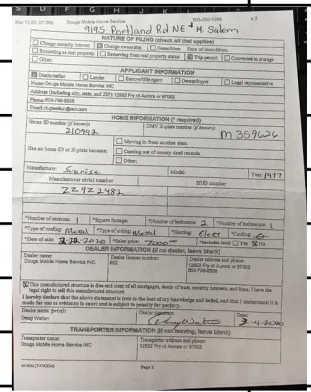 Mar 12 20, 01:39p Dougs Mobile Home Service 503-200-1299 p.2
9195 Portland Rd NE # H. Salem
NATURE OF FILING (check all that applies)
Change security interest Change ownership Demolition Date of demolition:
Recording as real property Removing from real property status Trip permit Converted to storage
Other:
APPLICANT INFORMATION
Dealer/seller Lender Escrow/title agent Owner/buyer Legal representative
Name: Dougs Mobile Home Service INC
Address (including city, state, and ZIP): 12592 Fry rd Aurora or 97002
Phone: 503-798-0039
HOME INFORMATION (* required)
Home ID number (if known): DMV X-plate number (if known):
210992 M 359626
Has no home ID or X-plate because: Moving in from another state
Coming out of county deed records
Other:
Manufacturer: Sunrise Model: Year: 1977
Manufacturer serial number HUD number
ZZ922482
*Number of sections: 1 *Square footage: *Number of bedrooms: 2 *Number of bathrooms: 1
*Type of roofing: Metal *Type of siding: Metal *Heating: Elect *Cooling:
*Date of sale: *Sales price: 7000 *Includes land: Yes No
DEALER INFORMATION (if no dealer, leave blank)
Dealer name: Dealer license number: Dealer address and phone:
Dougs Mobile Home Service INC 652 12592 Fry rd Aurora or 97002
503-798-0039
This manufactured structure is free and clear of all mortgages, deeds of trust, security interests, and liens. I have the
legal right to sell this manufactured structure.
I hereby declare that the above statement is true to the best of my knowledge and belief, and that I understand it is
made for use as evidence in court and is subject to penalty for perjury.
Dealer name (print): Dealer signature: Date:
Doug Watten 3-4-2020
TRANSPORTER INFORMATION (if not moving, leave blank)
Transporter name: Transporter address and phone:
Dougs Mobile Home Service INC 12592 Fry rd Aurora or 97002
Page 2